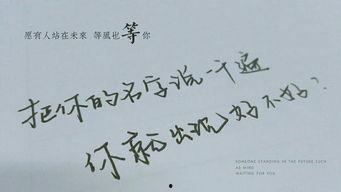 愿有人站在未來 等風也等你
把你的名字说一千遍
你就出现好不好?
SOMEONE STANDING IN THE FUTURE SUCH
AS WIND
WAITING FOR YOU